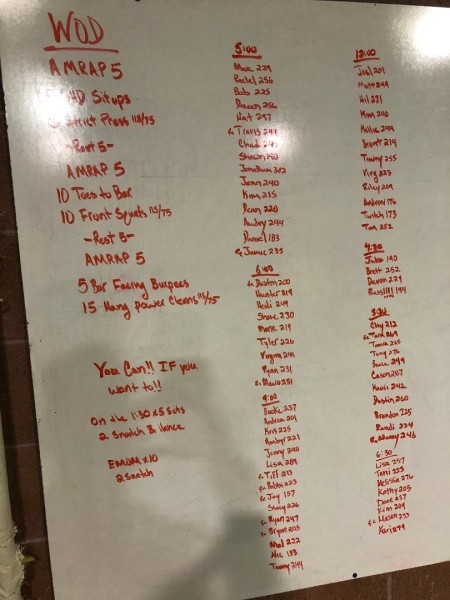 WOD
AMRAP 5
GHD Situps
Strict Press 115/75
-Rest 5-
AMRAP 5
10 Toes to Bar
10 Front Squats 115/75
-Rest 5-
AMRAP 5
5 Bar Facing Burpees
15 Hang power Cleans 115/75
You Can!! If you
want to!!
On the 1:30 x 5 Sets
2 Snatch &
EMOM x10
2 Snatch
5:00
229
256
Bob 225
256
Nat 297
Travis
Chad
Shawn 150
Jonathan 302
Jenn 240
Kim 215
Ryan 220
Audry 244
Daniel 183
Jamie 235
6:00
Dustin 200
Hunter 319
Heidi 249
Shane 230
Mark 219
Tyler 226
Virginia
Ryan 231
251
9:00
237
Andrea 209
Kris 225
221
Jenny 240
Lisa 289
Tiff 213
223
Jay 157
Stacy 226
Ryan 247
Bryan 205
Mel 222
Nic 133
Tammy 244
12:00
Joel 201
Matt 249
231
Kim 240
Hollie 299
Brent 214
Tammy 255
Virg 223
Riley 209
Andrew 176
173
Tom 252
4:30
John 190
Brett 252
Devon 229
Russ!!!! 194
5:30
Clay 212
Tara 269
265
Tony
249
Cason 207
242
Dustin 260
Brandon 225
Randi 224
246
6:30
Lisa 257
Toni 223
Melissa 276
Kathy 205
Dave 257
Kim 209
Mason 233
Kari 279